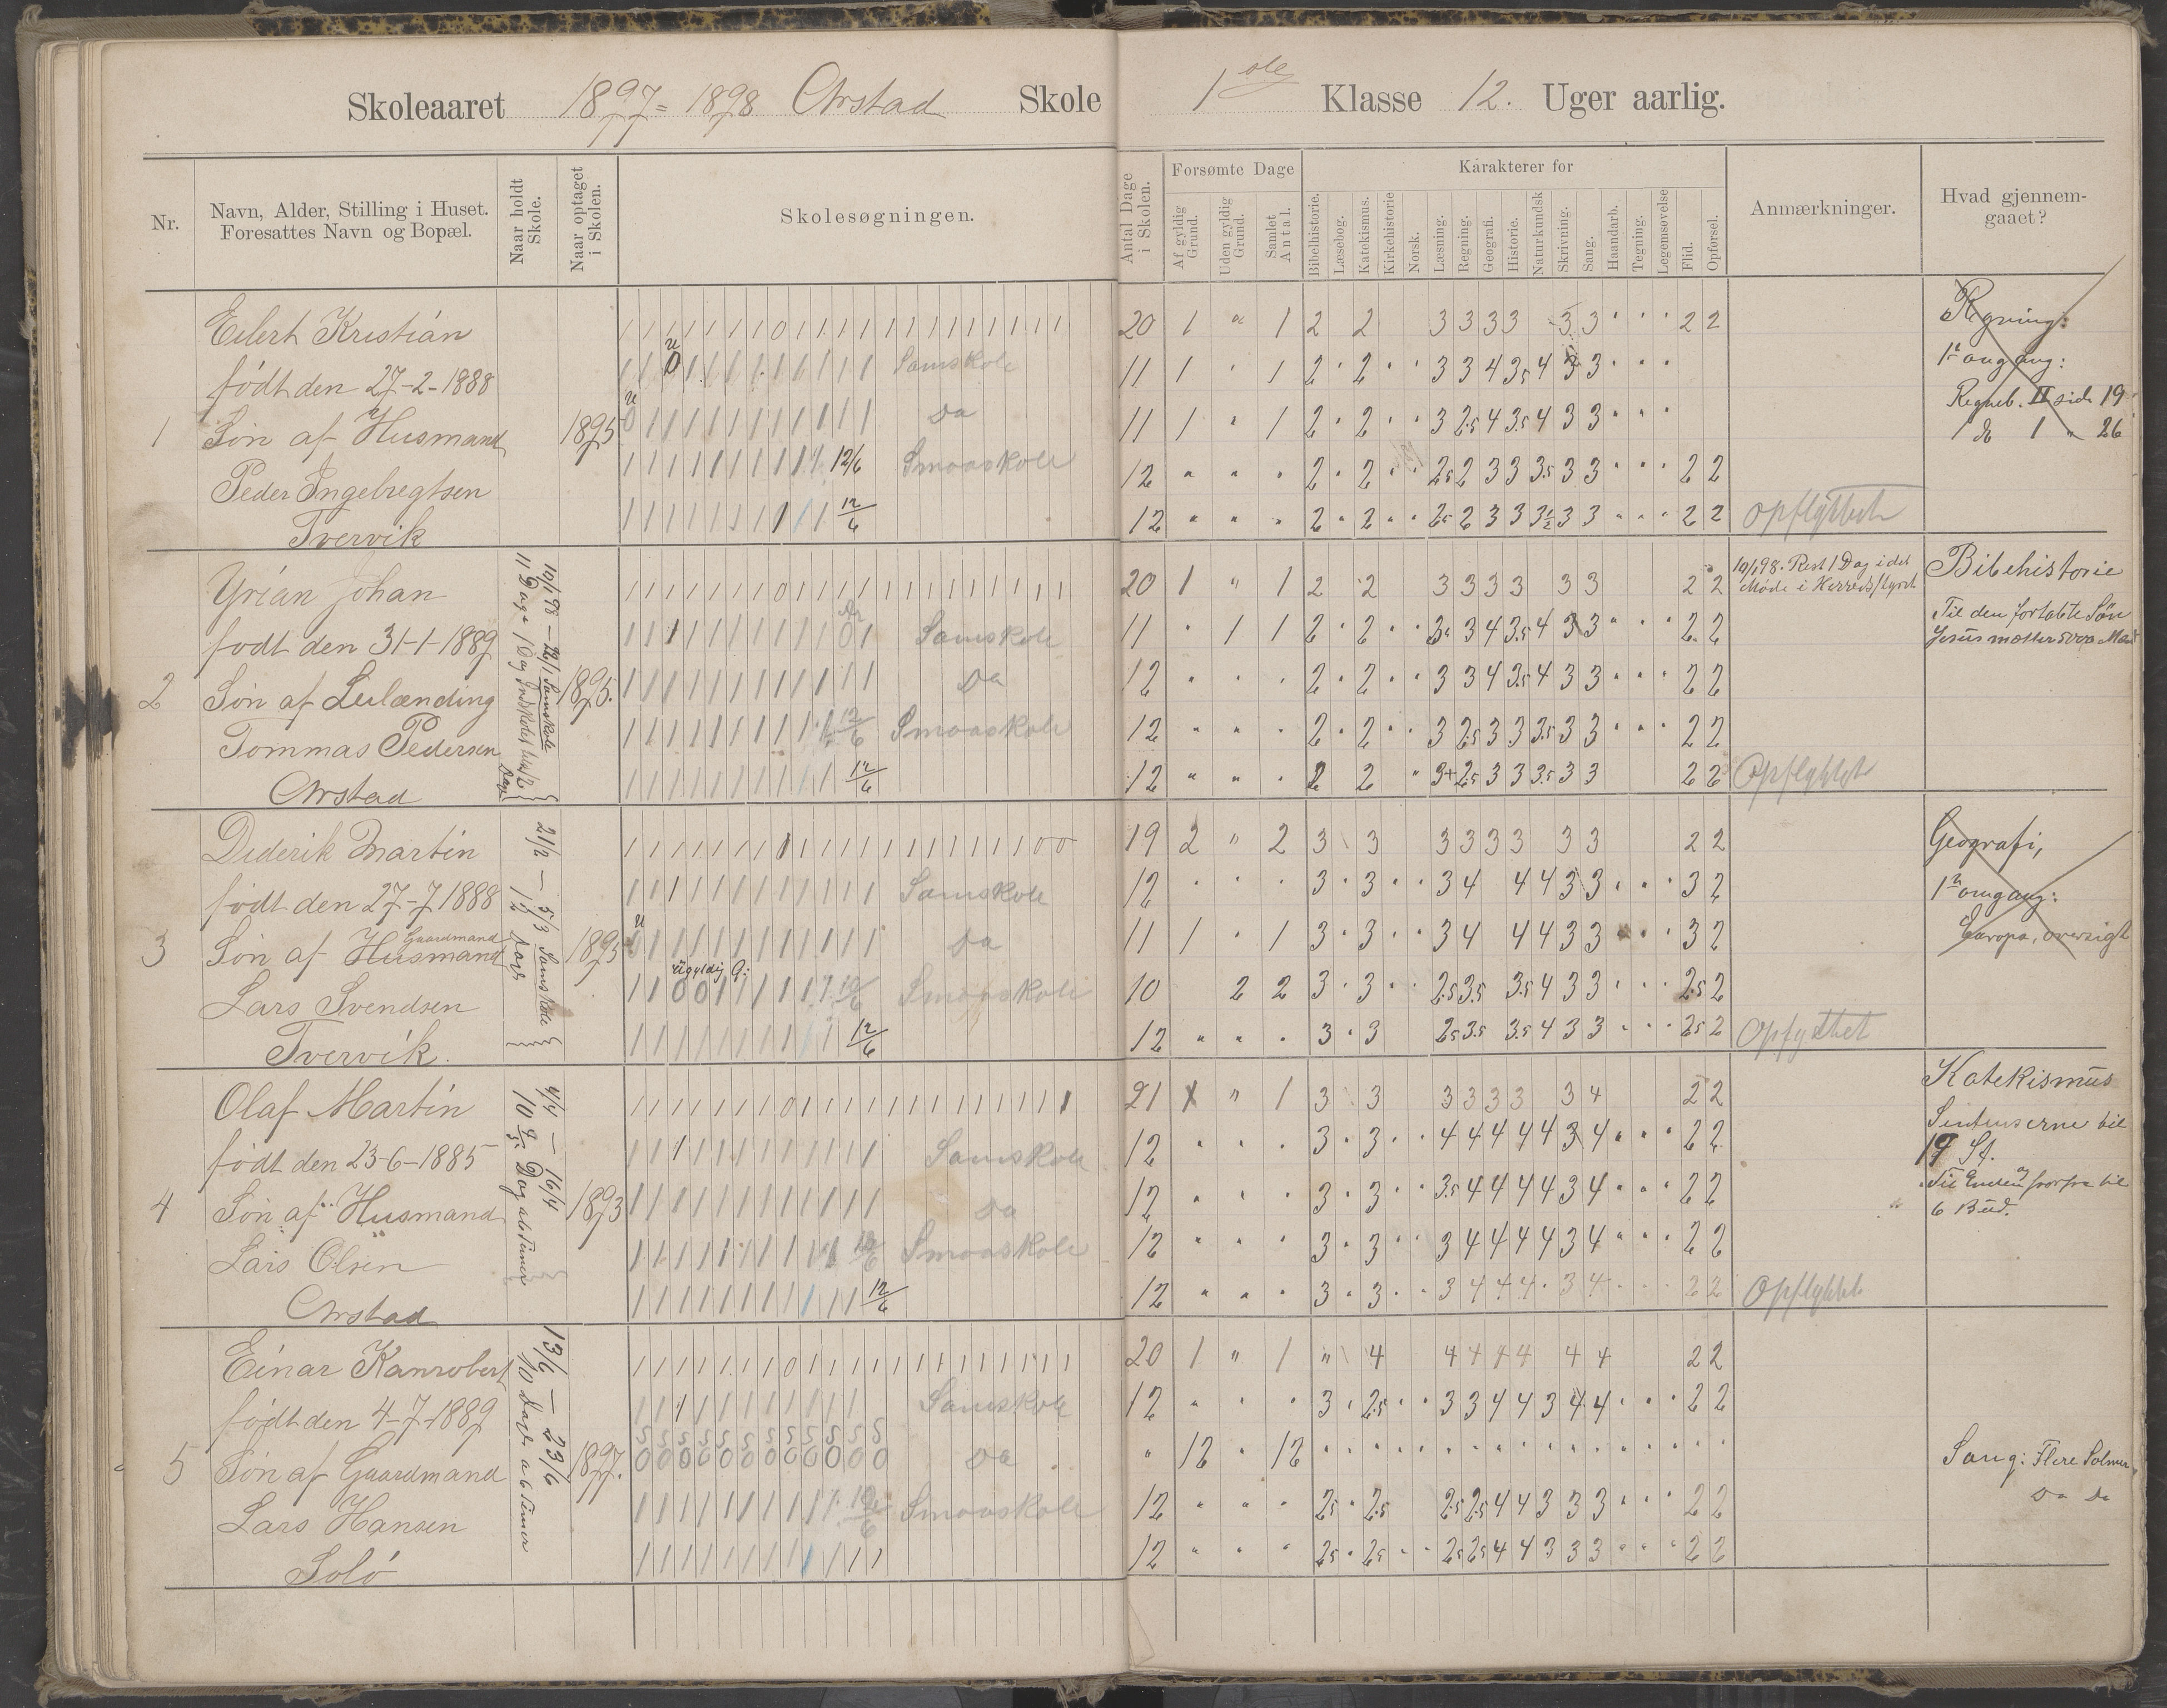 Skoleaaret 1897=1898 Arstad Skole 1ste Klasse 12. Uger aarlig.
Nr.
Navn, Alder, Stilling i Huset.
Foresattes Navn og Bopæl.
Naar holdt Skole.
Naar optaget i Skolen.
Skolesøgningen.
Antal Dage i Skolen.
Forsømte Dage
Af gyldig Grund.
Uden gyldig Grund.
Samlet Antal.
Karakterer for
Bibelhistorie.
Læsebog.
Katekismus.
Kirkehistorie
Norsk.
Læsning.
Regning.
Geografi.
Historie.
Naturkundsk
Skrivning.
Sang.
Haandarb.
Tegning.
Legemsøvelse
Flid.
Opførsel.
Anmærkninger.
Hvad gjennemgaaet?
1
Eilert Kristian
født den 27-2-1888
Søn af Husmand
Peder Ingebregtsen
Tvervik
1895
1 1 1 1 1 1 1 1 0 1 1 1 1 1 1 1 1 1 1 1 1
20 1 " 1 2 2 3 3 3 3 3 3 2 2
Samskole
11 1 " 1 2 2 3 3 4 3,5 4 3 3
Da
11 1 " 1 2 2 3 2,5 4 3,5 4 3 3
12/6 Smaaskole
12 " " " 2 2 2,5 2 3 3 3,5 3 3 2 2
12/6
12 " " " 2 2 2,5 2 3 3 3½ 3 3 2 2
Opflyttet
Regning:
1ste omgang:
Regneb. II side 19
1 do 1 " 26
2
Yrian Johan
født den 31-1-1889
Søn af Leilænding
Tommas Pedersen
Arstad
1895.
20 1 " 1 2 2 3 3 3 3 3 3 2 2
Samskole
11 " 1 1 2 2 3 3 4 3,5 4 3 3 2 2
Da
12 2 2 3 3 4 3,5 4 3 3 2 2
12/6 Smaaskole
12 2 2 3 2,5 3 3 3,5 3 3 2 2
12/6
12 2 2 3+ 2,5 3 3 3,5 3 3 2 2
Opflyttet
Bibehistorie
Til den fortabte Søn
Jesus mætter 5000 Mand
3
Diderik Martin
født den 27-7 1888
Gaardmand
Søn af Husmand
Lars Svendsen
Tvervik.
21/2 — 5/3 Samskole
12 Dage
1895
19 2 " 2 3 3 3 3 3 3 3 3 2 2
Samskole
12 3 3 3 4 4 4 3 3 3 2
Da
11 1 1 3 3 3 4 4 4 3 3 3 2
ugyldig G:
Smaaskole
10 2 2 3 3 2,5 3,5 3,5 4 3 3 2,5 2
12/6
12 3 3 2,5 3,5 3,5 4 3 3 2,5 2
Geografi,
1ste omgang:
Europa, oversigt
4
Olaf Martin
født den 23-6-1885
Søn af Husmand
Lars Olsen
Arstad
4/4 — 16/4
1893
21 " 1 3 3 3 3 3 3 3 4 2 2
Samskole
12 3 3 4 4 4 4 4 3 4 2 2
Da
12 3 3 3,5 4 4 4 4 3 4 2 2
Smaaskole
12 3 3 3 4 4 4 4 3 4 2 2
12/6
12 3 3 3 4 4 4 3 4 2 2
Opflyttet
Katekismus
Sentenserne til
6 Bud.
5
Einar Kanrobert
født den 4-7-1889
Søn af Gaardmand
Lars Hansen
Solø
13/6 — 23/6
10 Dage a 6 Timer
1897.
20 1 " 1 " 4 4 4 4 4 4 4 2 2
Samskole
12 3 2,5 3 3 4 4 3 4 4 2 2
5 5 5 5 5 5 5 5 5 5 5 5
0 0 0 0 0 0 0 0 0 0 0 0 Da
" 12 " 12
Smaaskole
12 2,5 2,5 2,5 2,5 4 4 3 3 3 2 2
12 2,5 2,5 2,5 2,5 4 4 3 3 3 2 2
Sang: Flere Salmer
Da Da